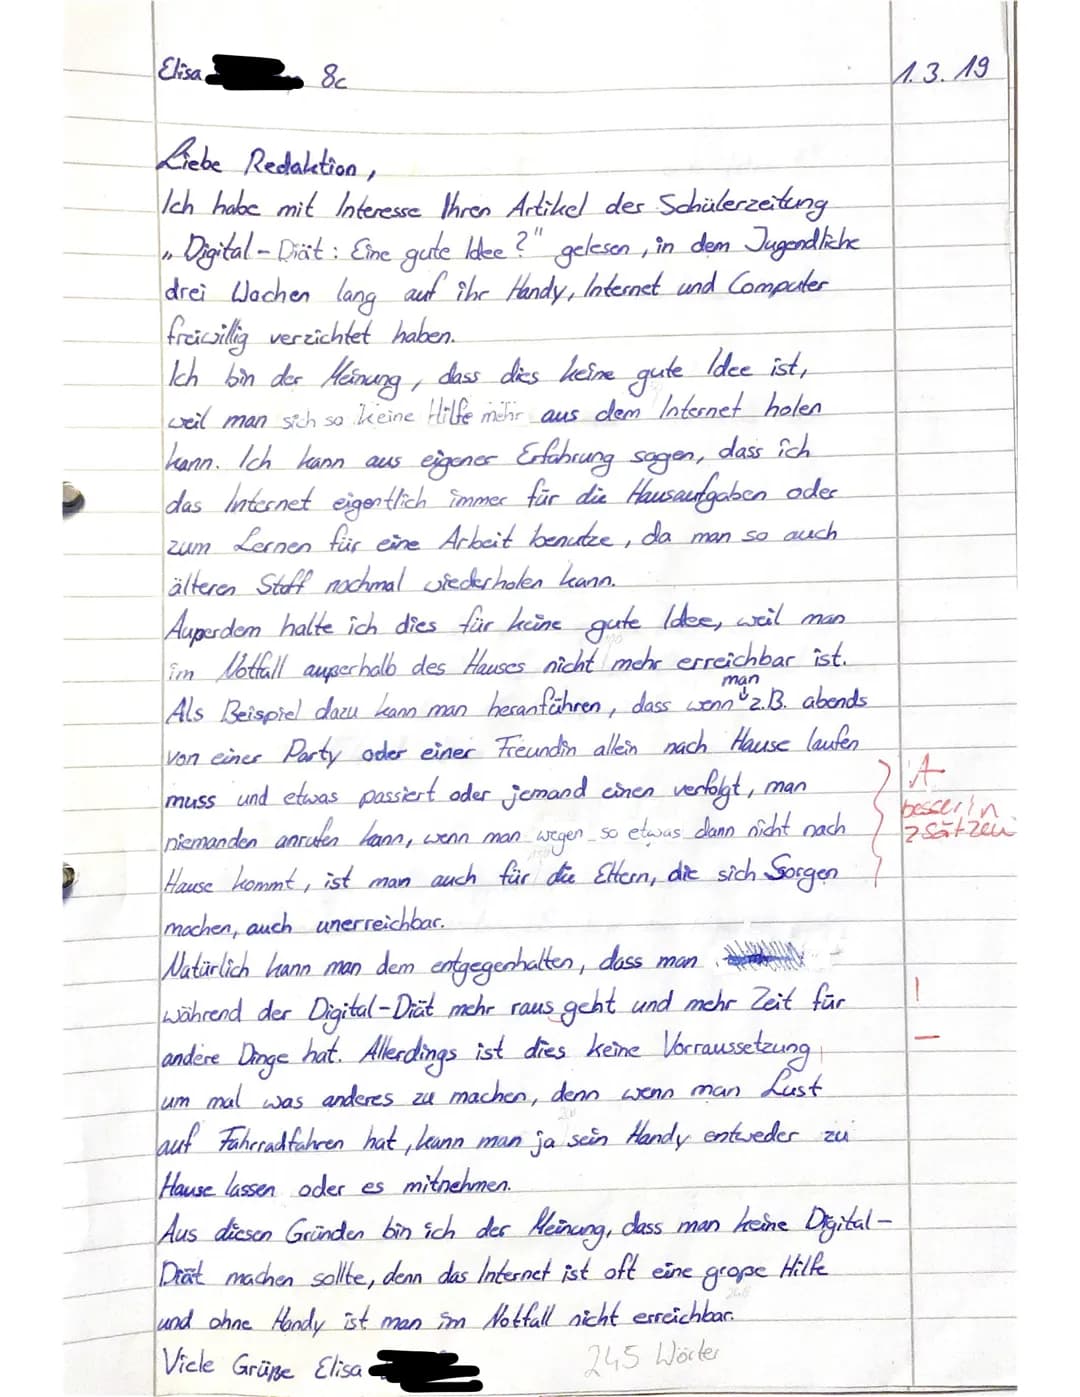 Elisa 8c 1.3.19
Liebe Redaktion,
Ich habe mit Interesse Ihren Artikel der Schülerzeitung
„Digital-Diät: Eine gute Idee?" gelesen, in dem Jugendliche
drei Wochen lang auf ihr Handy, Internet und Computer
freiwillig verzichtet haben.
Ich bin der Meinung, dass dies keine gute Idee ist,
weil man sich so keine Hilfe mehr aus dem Internet holen
kann. Ich kann aus eigener Erfahrung sagen, dass ich
das Internet eigentlich immer für die Hausaufgaben oder
zum Lernen für eine Arbeit benutze, da man so auch
älteren Stoff nochmal wiederholen kann.
Außerdem halte ich dies für keine gute Idee, weil man
im Notfall außerhalb des Hauses nicht mehr erreichbar ist.
man
Als Beispiel dazu kann man heranführen, dass wenn z.B. abends
von einer Party oder einer Freundin allein nach Hause laufen
muss und etwas passiert oder jemand einen verfolgt, man
niemanden anrufen kann, wenn man wegen so etwas dann nicht nach
Hause kommt, ist man auch für die Eltern, die sich Sorgen
machen, auch unerreichbar.
A
besser in
2 Sätzen
Natürlich kann man dem entgegenhalten, dass man
während der Digital-Diät mehr raus geht und mehr Zeit für
!
andere Dinge hat. Allerdings ist dies keine Vorraussetzung
—
um mal was anderes zu machen, denn wenn man Lust
auf Fahrradfahren hat, kann man ja sein Handy entweder zu
Hause lassen oder es mitnehmen.
Aus diesen Gründen bin ich der Meinung, dass man keine Digital-
Diät machen sollte, denn das Internet ist oft eine große Hilfe
und ohne Handy ist man im Notfall nicht erreichbar.
Viele Grüße Elisa
245 Wörter